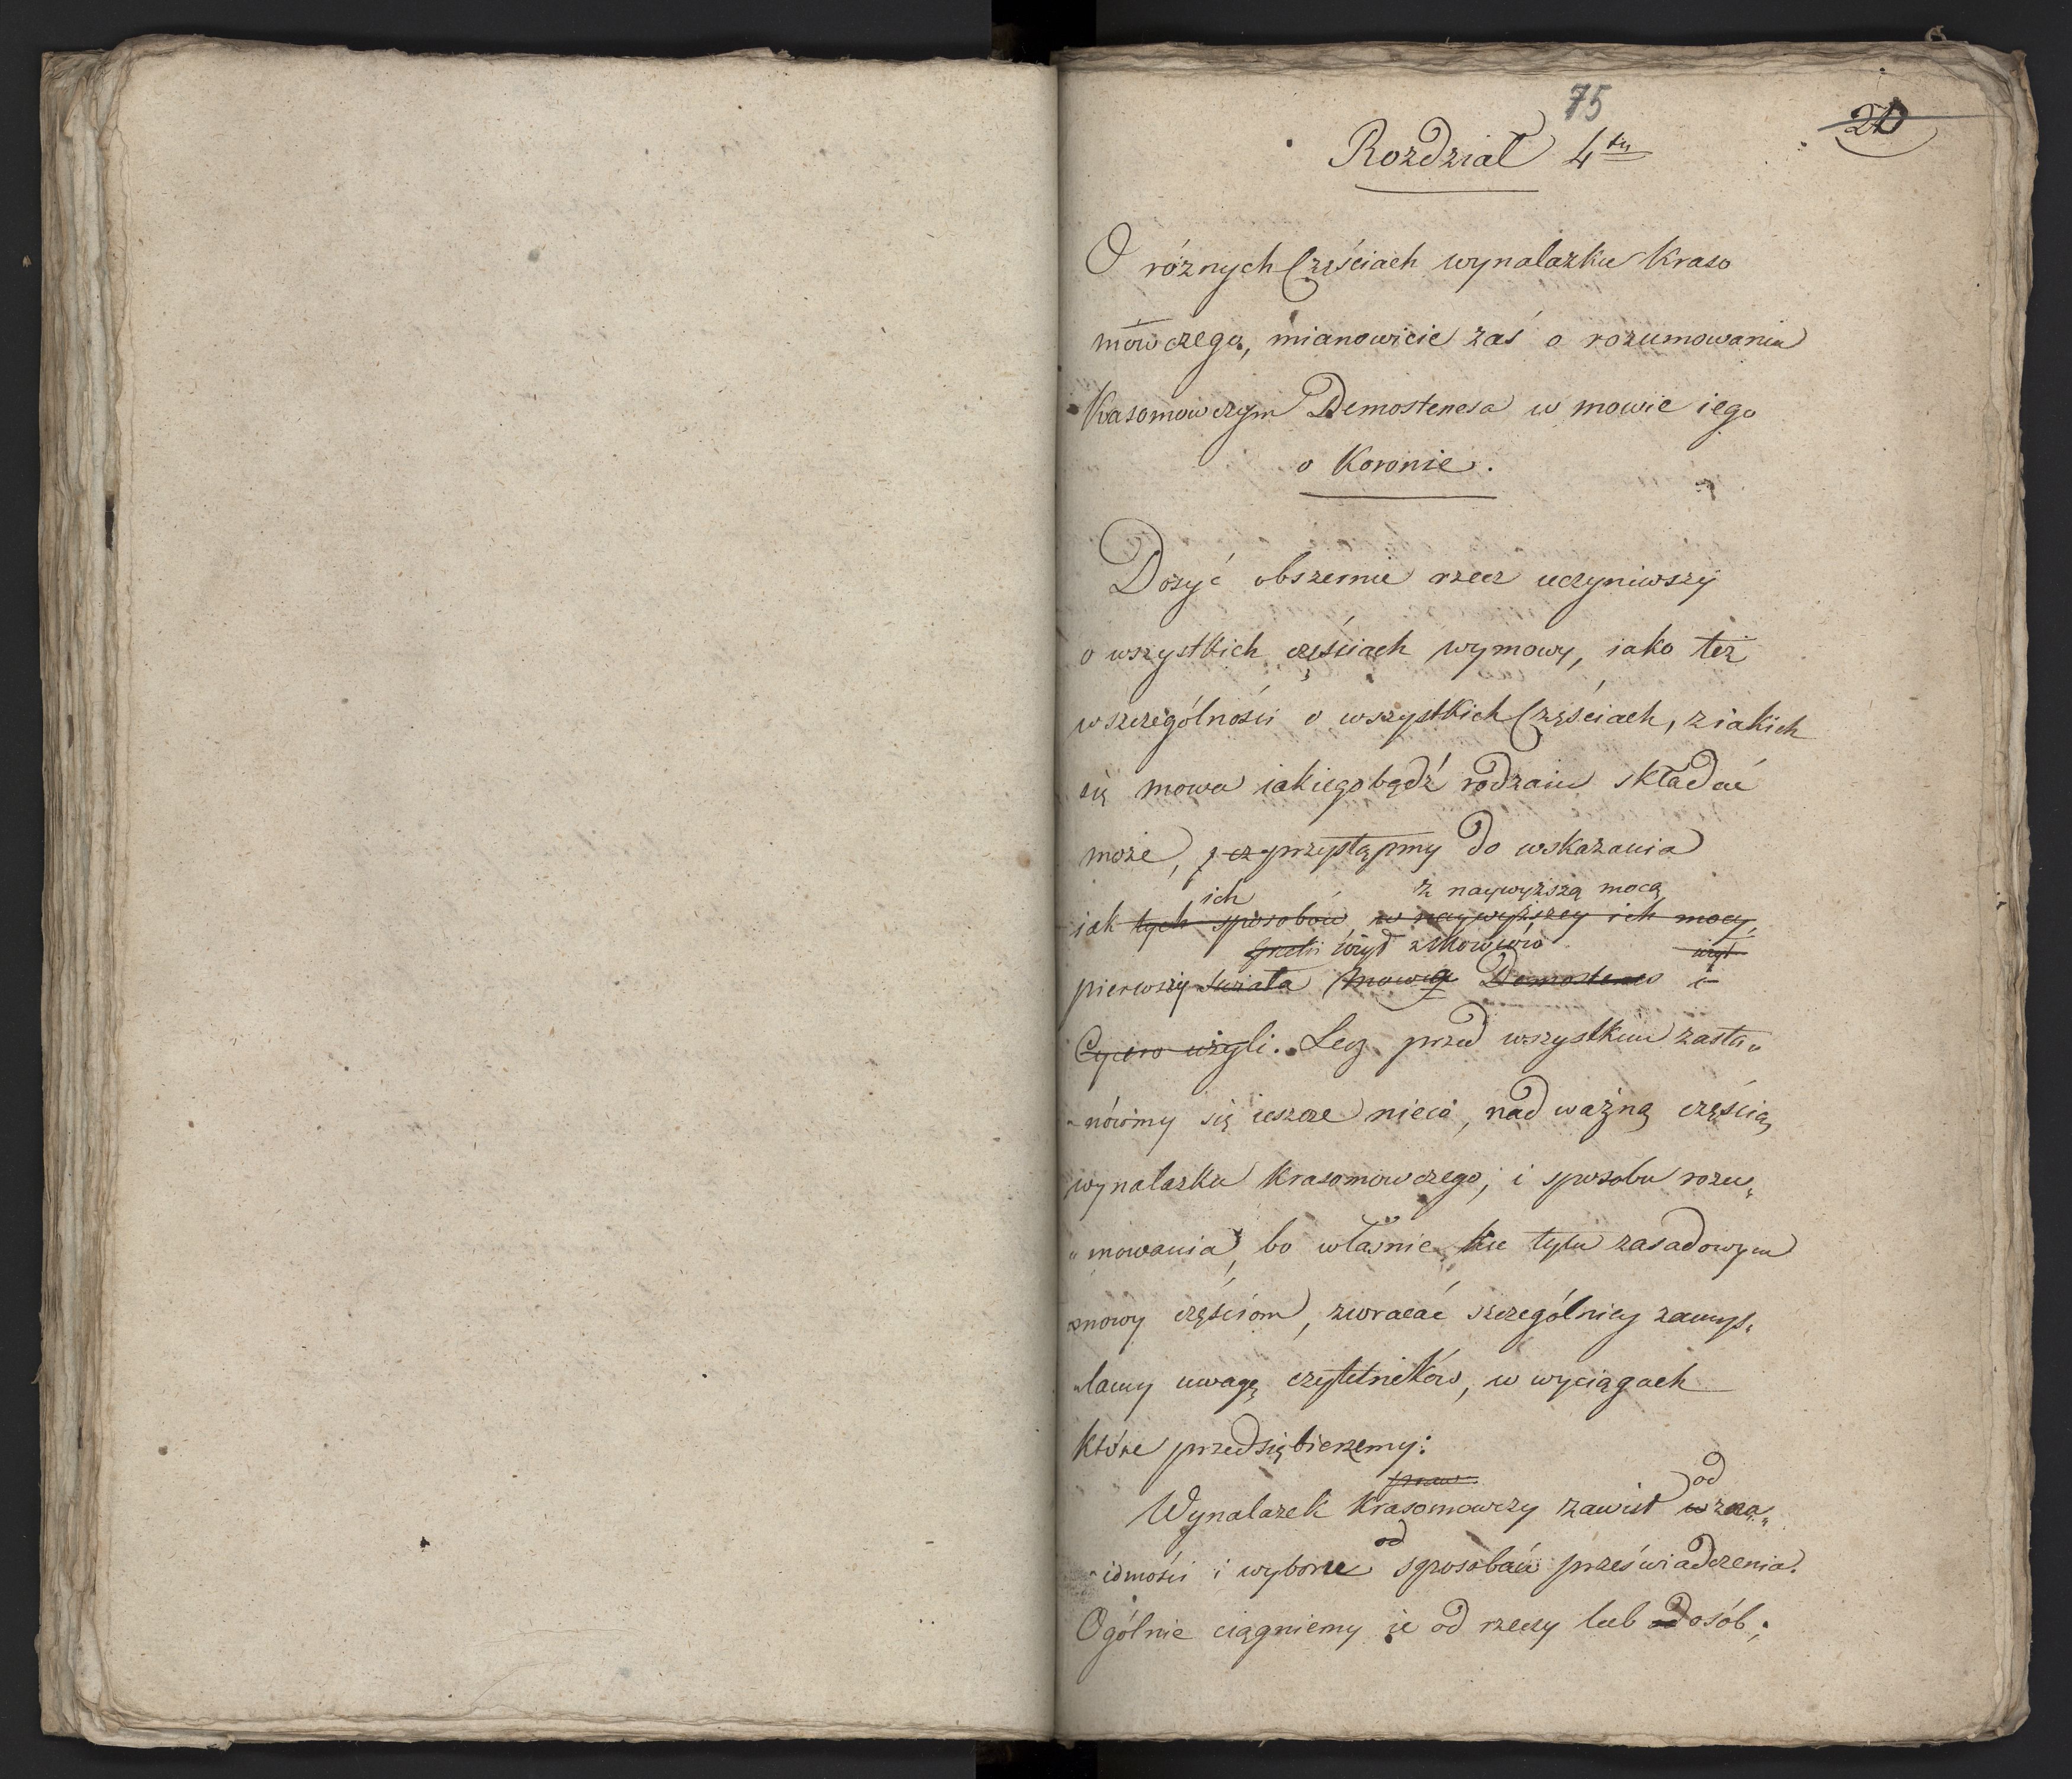 75
20
Rozdział 4ty
O różnych Częściach wynalazku Kraso
mówczego, mianowicie zaś o rozumowaniu
Krasomowczym Demostenesa w mowie iego
o Koronie.
Dosyć obszernie rzecz uczyniwszy
o wszystkich częściach wymowy, iako też
w szczególności o wszystkich Częściach, z iakich
się mowa iakiegobądź rodzaiu składać
może, przystąpmy do wskazania
ich z naywyższą mocą
iak tych sposobów, w naywyższey ich mocy,
użył z Mowców użył
pierwszy świata Demostenes i
Cycero użyli. Lecz przed wszystkiem zasta„
„nówmy się ieszcze nieco, nad ważną częścią
wynalazku Krasomowczego, i sposobu rozu„
„mowania, bo właśnie ku tym zasadowym
mowy częściom, zwracać szczególniey zamyś„
„lamy uwagę czytelników, w wyciągach
które przedsiębierzemy:
od
Wynalazek Krasomowczy zawisł w zna„
od
„iomości i wyboru sposobów przeświadczenia.
Ogólnie ciągniemy ie od rzeczy lub od osób;